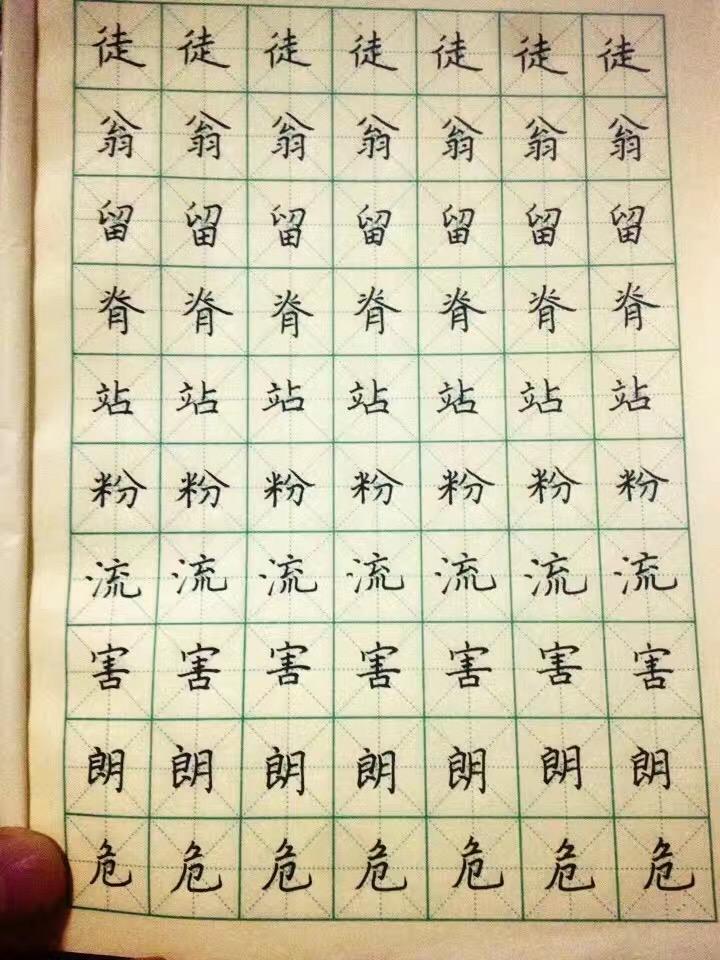 徒徒徒徒徒徒徒
翁翁翁翁翁翁翁
留留留留留留留
脊脊脊脊脊脊脊
站站站站站站站
粉粉粉粉粉粉粉
流流流流流流流
害害害害害害害
朗朗朗朗朗朗朗
危危危危危危危